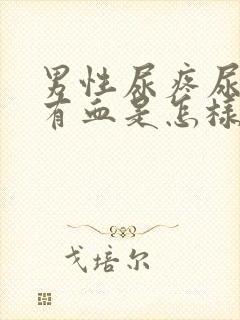 男性尿疼尿
有血是怎样
戈培尔